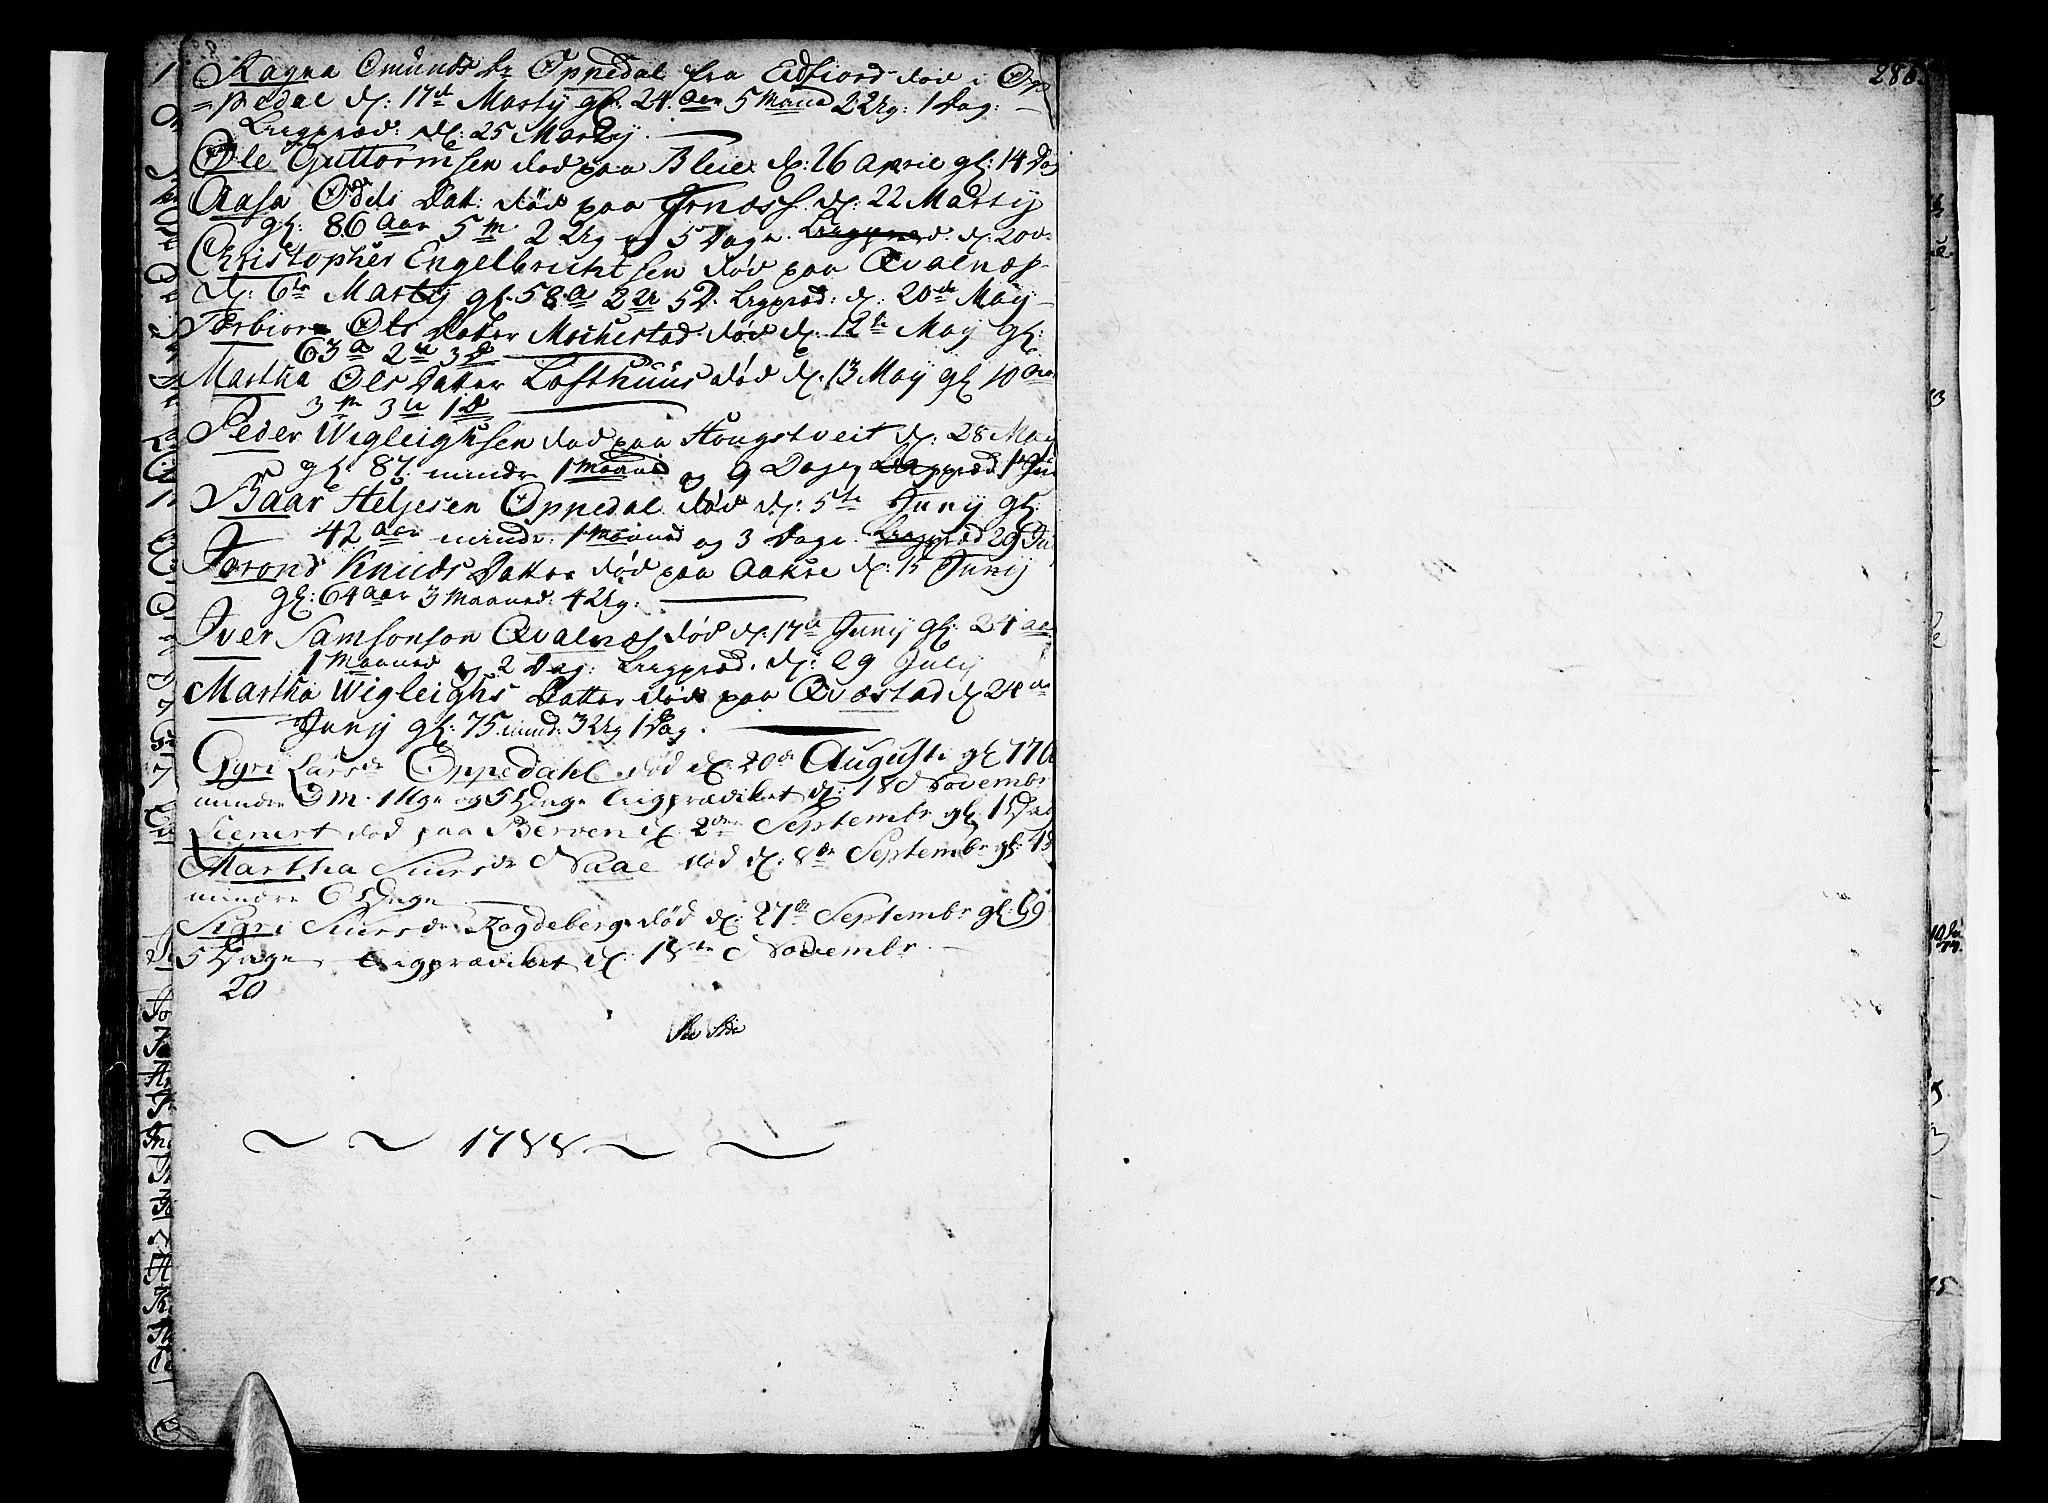 Ragna Omunds Dr Oppedal fra Eidfiord død i Op
=pedal d: 17de Martij gl: 24 aar 5 Maan 2 Ug: 1 Dag:
Liigpræd: d: 25 Martij.
Ole Guttormsen død paa Bleie d: 26 April gl: 14 Da
Aasa Odds Dat: død paa d: 22 Martij
gl: 86 aar 5 m 2 Ug og 5 Dage. Liigpræd: d: 20de
Christopher Engelbrichtsen død paa Qvalnæs
d: 6te Martij gl. 58 a 2 u 5 D. Liigpræd: d: 20de Maij
Torbior Ols Datter Mochestad død d: 12te Maij gl:
63 a 2 u 3 D
Martha Ols Datter Lofthuus død d. 13 Maij gl 10 aar
3 m 3 u 1 D
Peder Wigleighsen død paa Hougstveit d: 28 Maij
gl 87 mindr 1 Maaned og 9 Dage Liigpræd 1 Jul
Baar Heljesen Oppedal død d: 5te Junij gl:
42 aar mindr: 1 Maaned og 3 Dage. Liigpræd 29 Jul
Jorond Knuds Datter død paa Aakre d: 15 Junij
gl: 64 aar 3 Maaned: 4 Ug:
Iver Samsonson Qvalnæs død d: 17de Junij gl: 24 aar
1 Maaned og 2 Dag: Liigpræd. d: 29 Julij
Martha Wigleighs Datter død paa Qvæstad d 24de
Junij gl: 75 mind: 3 Ug 1 Dag.
Gyri Lars dr Oppedahl død d: 20de Augusti gl 770
mindre 3 M. 1 Uge og 5 Dage liigprædiket d: 18 Novembr
Lienert død paa Berven d. 2den Septembr gl 1 Dag
Martha Siurs dr Naae død d: 8de Septembr gl: 13
mindre 6 Dage
Sigri Siurs dr Ragdeberg død d: 27de Septembr gl: 69
5 Dage liigprædiket d: 18de Novembr.
20
1788
286